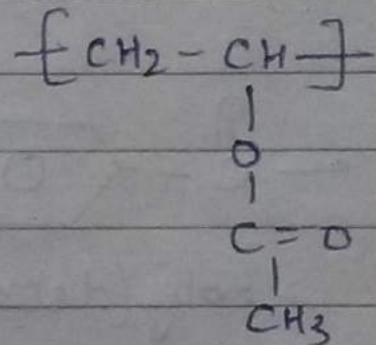 -[CH2-CH-]-
|
O
|
C=O
|
CH3